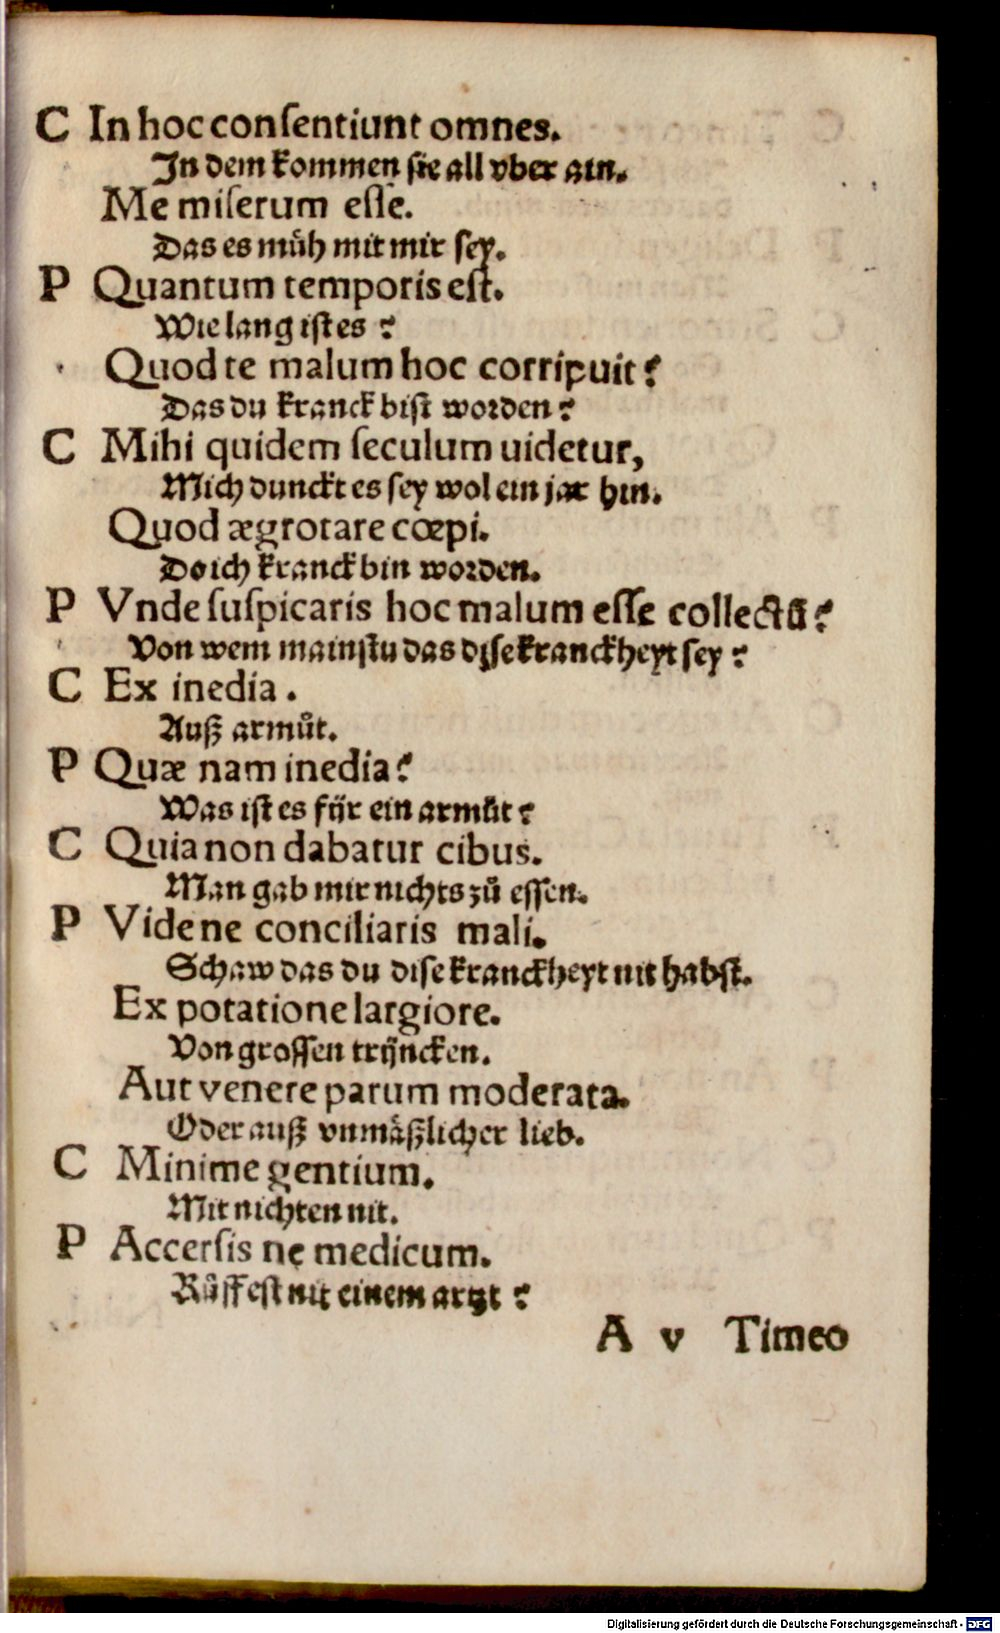 C In hoc consentiunt omnes.
In dem kommen sie all vber ain.
Me miserum esse.
Das es müh mit mir sey.
P Quantum temporis est.
Wie lang ist es ?
Quod te malum hoc corripuit?
Das du kranck bist worden?
C Mihi quidem seculum uidetur,
Mich dunckt es sey wol ein jar hin.
Quod ægrotare cœpi.
Do ich kranck bin worden.
P Vnde suspicaris hoc malum esse collectũ?
Von wem mainstu das dise kranckheyt sey?
C Ex inedia.
Auß armůt.
P Quæ nam inedia?
Was ist es für ein armůt?
C Quia non dabatur cibus.
Man gab mir nichts zů essen.
P Videne conciliaris mali.
Schaw das du dise kranckheyt nit habst.
Ex potatione largiore.
Von grossen trÿncken.
Aut venere parum moderata.
Oder auß vnmäßlicher lieb.
C Minime gentium.
Mit nichten nit.
P Accersis ne medicum.
Růffest nit einem artzt?
A v Timeo
Digitalisierung gefördert durch die Deutsche Forschungsgemeinschaft - DFG